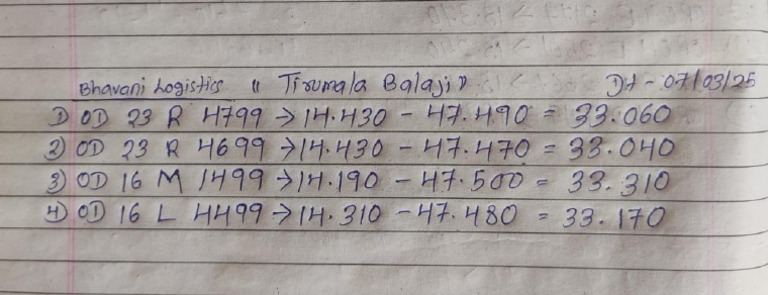 Bhavani Logistics "Tirumala Balaji" Dt - 07/03/25
1) OD 23 R 4799 → 14.430 - 47.490 = 33.060
2) OD 23 R 4699 → 14.430 - 47.470 = 33.040
3) OD 16 M 1499 → 14.190 - 47.500 = 33.310
4) OD 16 L 4499 → 14.310 - 47.480 = 33.170